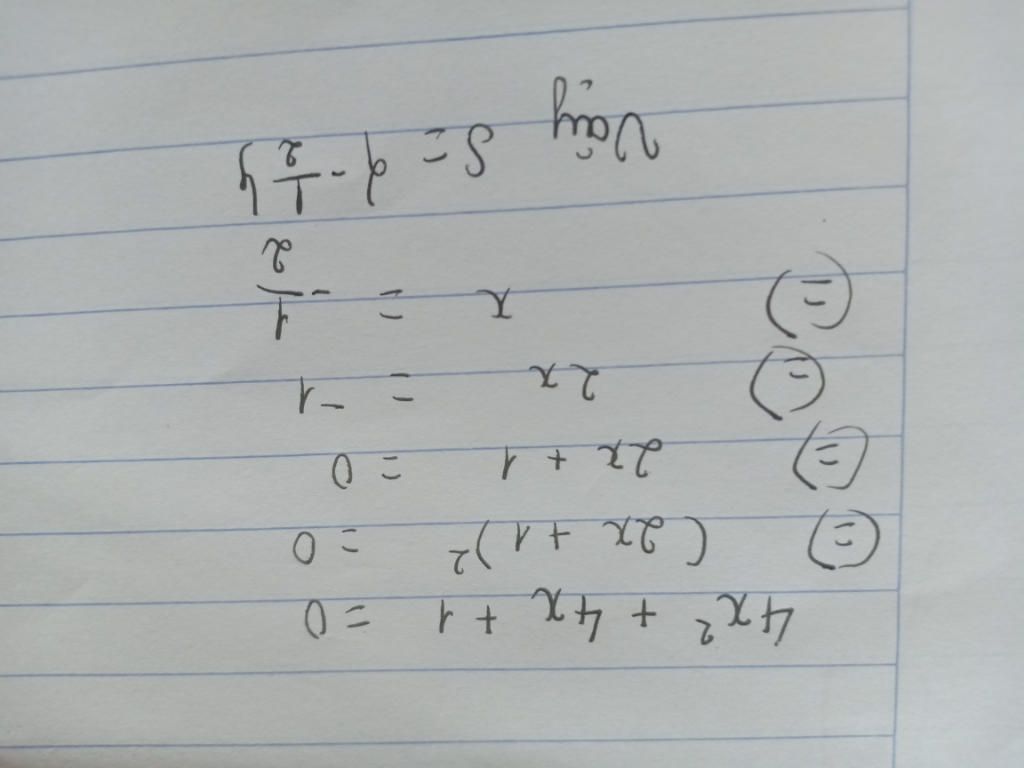 4x² + 4x + 1 = 0
(=) (2x + 1)² = 0
(=) 2x + 1 = 0
(=) 2x = -1
(=) x = -1/2
Vậy S = {-1/2}